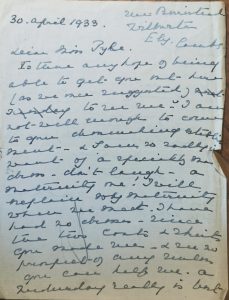 30. April 1933.
Wilburton
Ely. Cambs
Dear Miss Pyke.
Is there any hope of being
able to get you out here
(as we once suggested)
to see me? I am
not well enough to come
to your dressmaking
want - & I am so really in
want of a specially nice
dress - don't laugh - a
maternity one! I will
explain my maternity
when we meet. I have
had no dresses since
the two Coats & Skirts
you made me - & see no
prospect of any unless
you can help me. A
Wednesday really is best